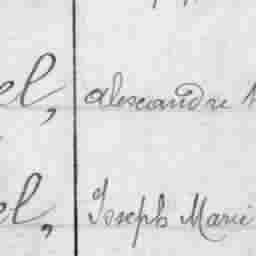 el, alexandre
el, Joseph Marie